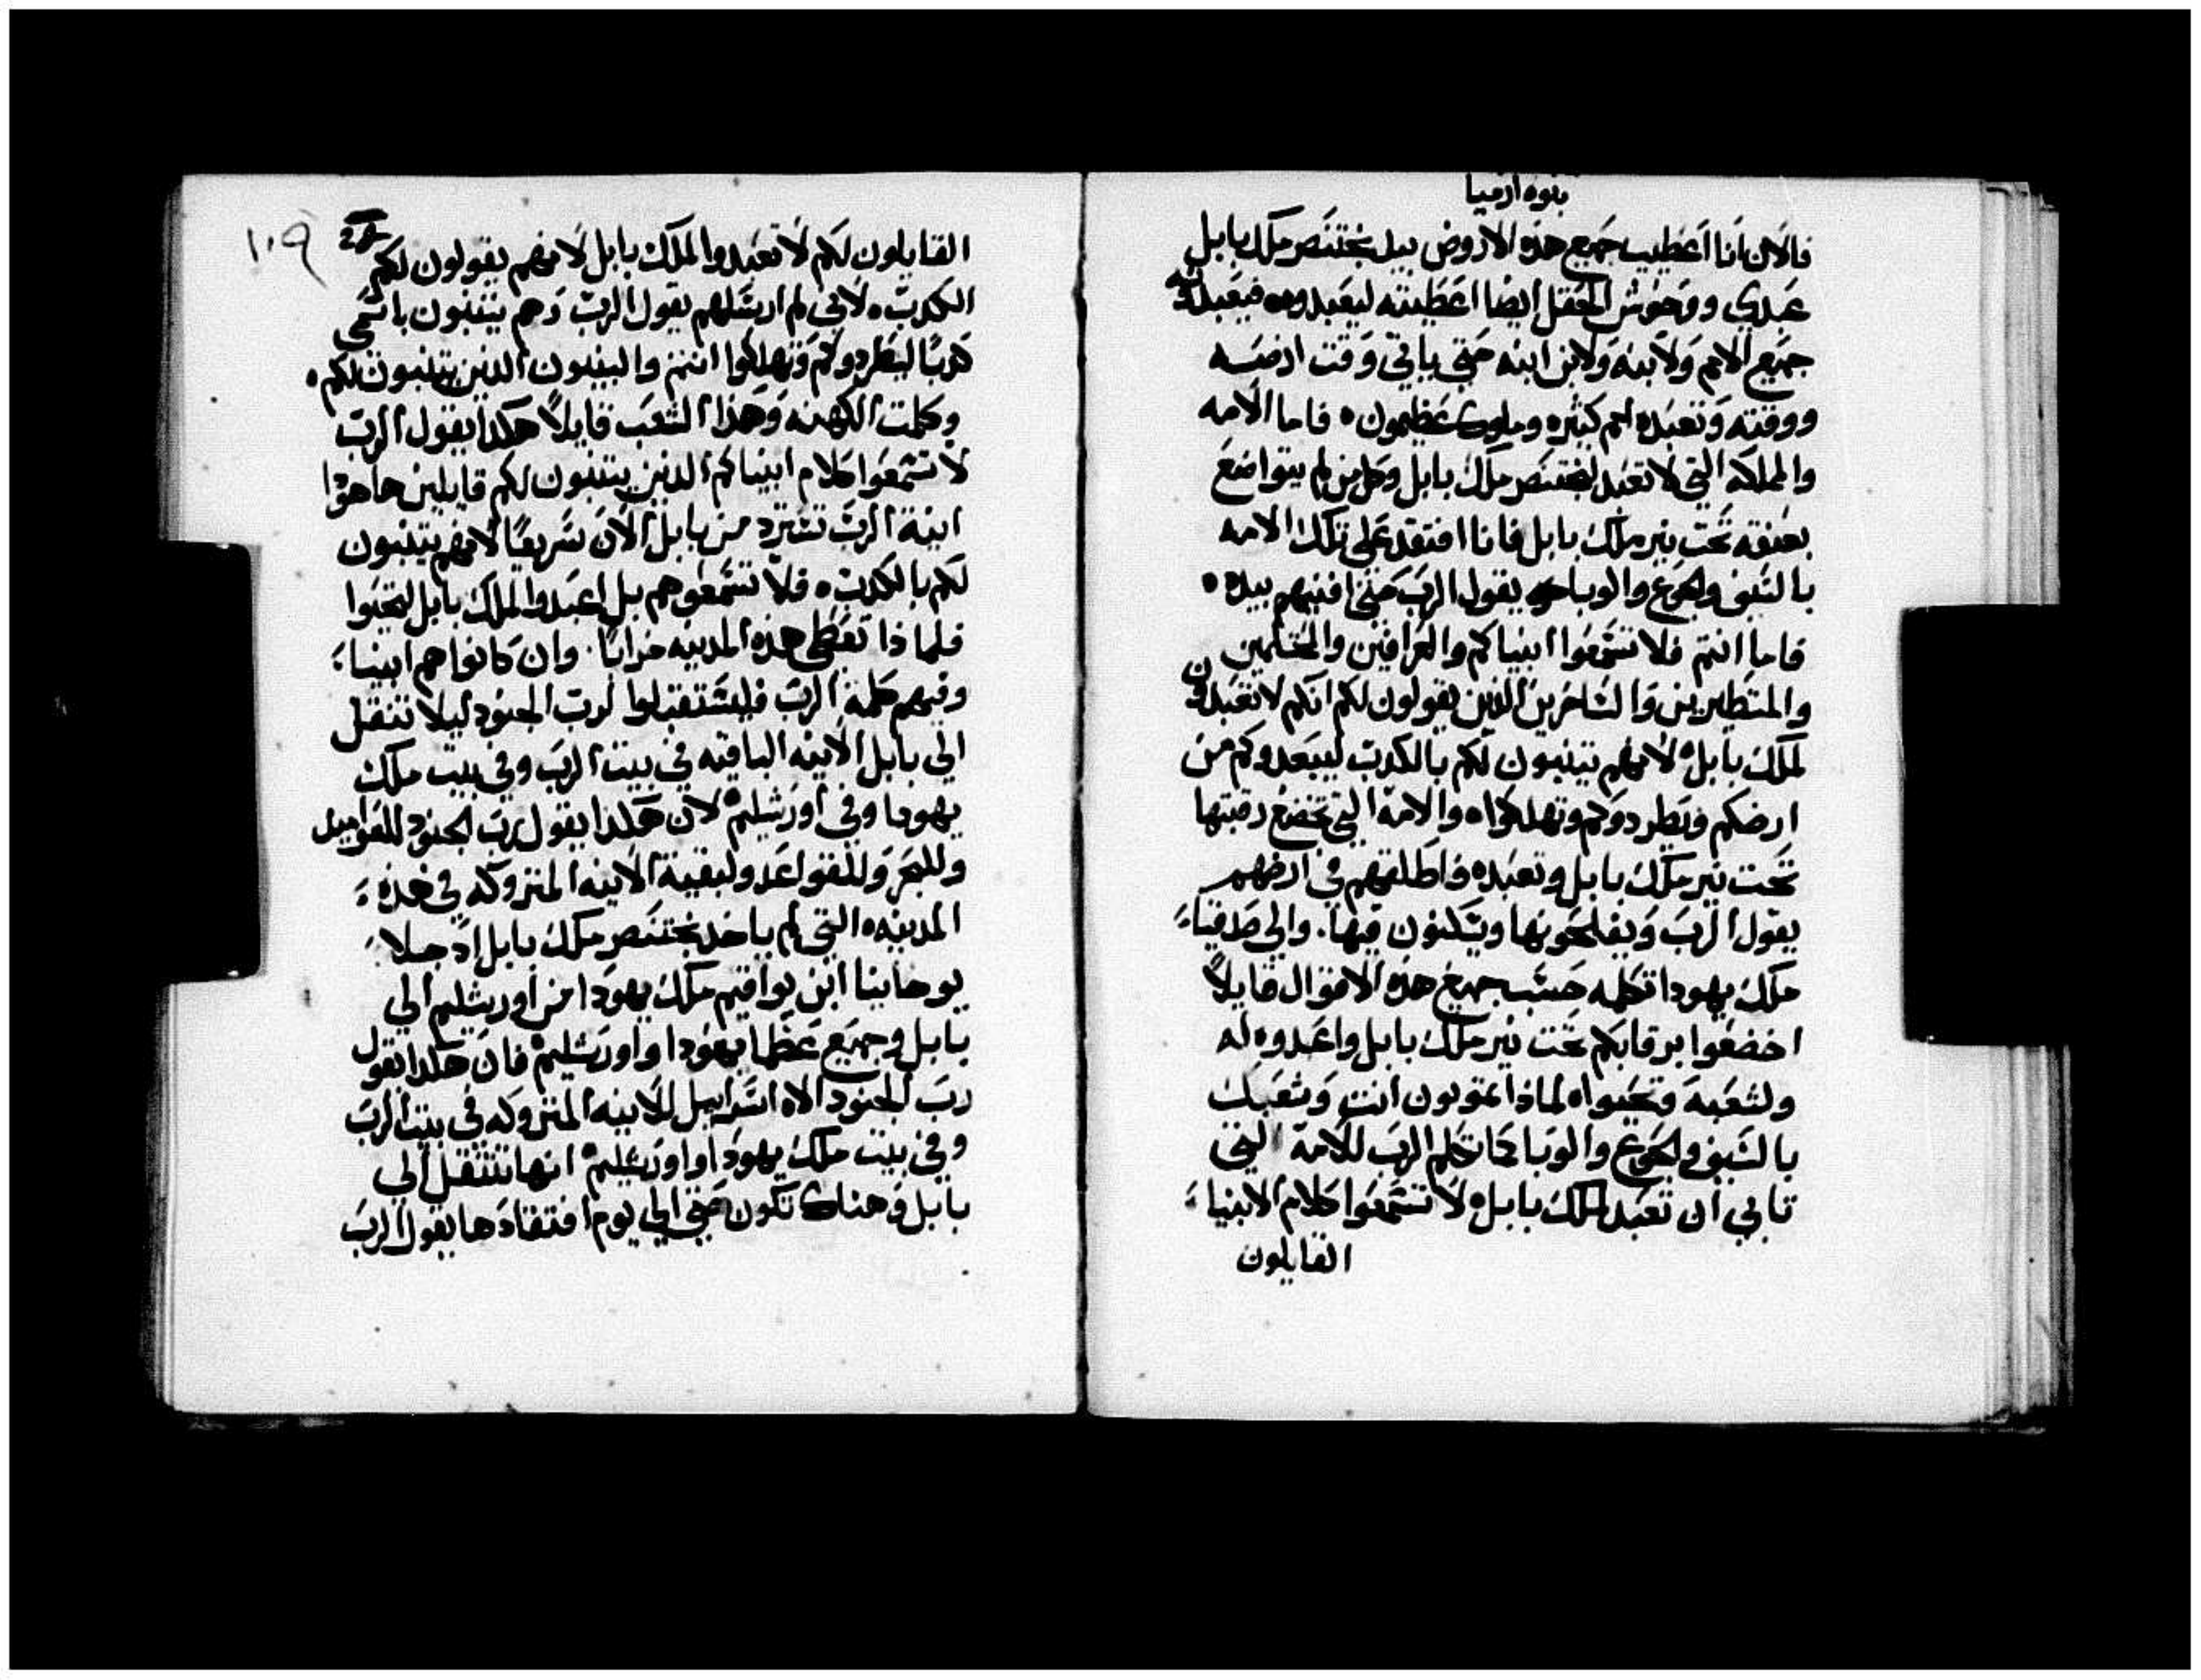 بنوه ارميا
فالان انا اعطيت جميع هذه الاروض بيد بختنصر ملك بابل
عبدي ووحوش الحقل ايضا اعطيته ليعبدوه فيعبدونه
جميع الامم ولابنه ولابن ابنه حتي ياتي وقت ارضه
ووقته وتعبده امم كثيره وملوك عظيمون ه فاما الامه
والمملكه التي لا تعبد لبختنصر ملك بابل وكل من لم يتواضع
بعنقه تحت نير ملك بابل فانا افتقد علي تلك الامه
بالسيف والجوع والوبا يقول الرب حتي افنيهم بيده ه
فاما انتم فلا تسمعوا انبياكم والعرافين والمحتلمين
والمتطيرين والساحرين الذين يقولون لكم انكم لا تعبدون
لملك بابل ه لانهم يتنبون لكم بالكدب ليبعدوكم من
ارضكم ويطردوكم وتهلكوا ه والامه التي تخضع رقبتها
تحت نير ملك بابل وتعبده فاطلقهم في ارضهم
يقول الرب ويفلحونها ويسكنون فيها. والي صدقيا
ملك يهودا تكلمه حسب جميع هذه الاقوال قايلاً
اخضعوا برقابكم تحت نير ملك بابل واعبدوه له
ولشعبه وتحيوا ه لماذا تموتون انت وشعبك
بالسيف والجوع والوبا كما تكلم الرب للامه التي
تابي ان تعبد لملك بابل ه لا تسمعوا كلام الانبيا
القايلون
١٠٩
القايلون لكم لا تعبدوا لملك بابل لانهم يقولون لكم
الكدب ه لاني لم ارسلهم يقول الرب وهم يتنبون باسمي
كدبًا ليطردوكم وتهلكوا انتم والنبيون الدين يتنبون لكم ه
وكلمت الكهنه وهذا الشعب قايلاً هكدا يقول الرب
لا تسمعوا كلام انبياكم الدين يتنبون لكم قايلين ها هودا
انية الرب تسترد من بابل الان سريعًا لانهم يتنبون
لكم بالكدب ه فلا تسمعوهم بل اعبدوا لملك بابل لتحيوا
فلماذا تعطي هذه المدينه خرابًا. وان كانوا هم انبيا
وفيهم كلمة الرب فليستقبلوا لرب الجنود ليلا تنتقل
الي بابل الانيه الباقيه في بيت الرب وفي بيت ملك
يهودا وفي اورشليم ه لان هكدا يقول رب الجنود للعواميد
وللبحر وللقواعد ولبقية الانيه المتروكه في هذه
المدينه ه التي لم ياخد بختنصر ملك بابل اد جلا
يوخانيا ابن يواقيم ملك يهودا من اورشليم الي
بابل وجميع عظما يهودا واورشليم ه فان هكدا يقول
رب الجنود الاه اسراييل للانيه المتروكه في بيت الرب
وفي بيت ملك يهودا واورشليم ه انها تنتقل الي
بابل وهناك تكون حتي الي يوم افتقادها يقول الرب